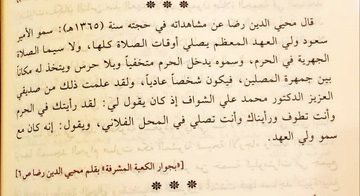 * * *
قال محيي الدين رضا عن مشاهداته في حجته سنة (١٣٦٥هـ): سمو الأمير
سعود ولي العهد المعظم يصلي أوقات الصلاة كلها، ولا سيما الصلاة
الجهرية في الحرم، وسموه يدخل الحرم متخفياً وبلا حرس ويتخذ له مكاناً
بين جمهرة المصلين، فيكون شخصاً عادياً، ولقد علمت ذلك من صديقي
العزيز الدكتور محمد علي الشواف إذ كان يقول لي: لقد رأيتك في الحرم
وأنت تطوف ورأيناك وأنت تصلي في المحل الفلاني، ويقول: إنه كان مع
سمو ولي العهد.
[«بجوار الكعبة المشرفة» بقلم محيي الدين رضا ص١]
* * *